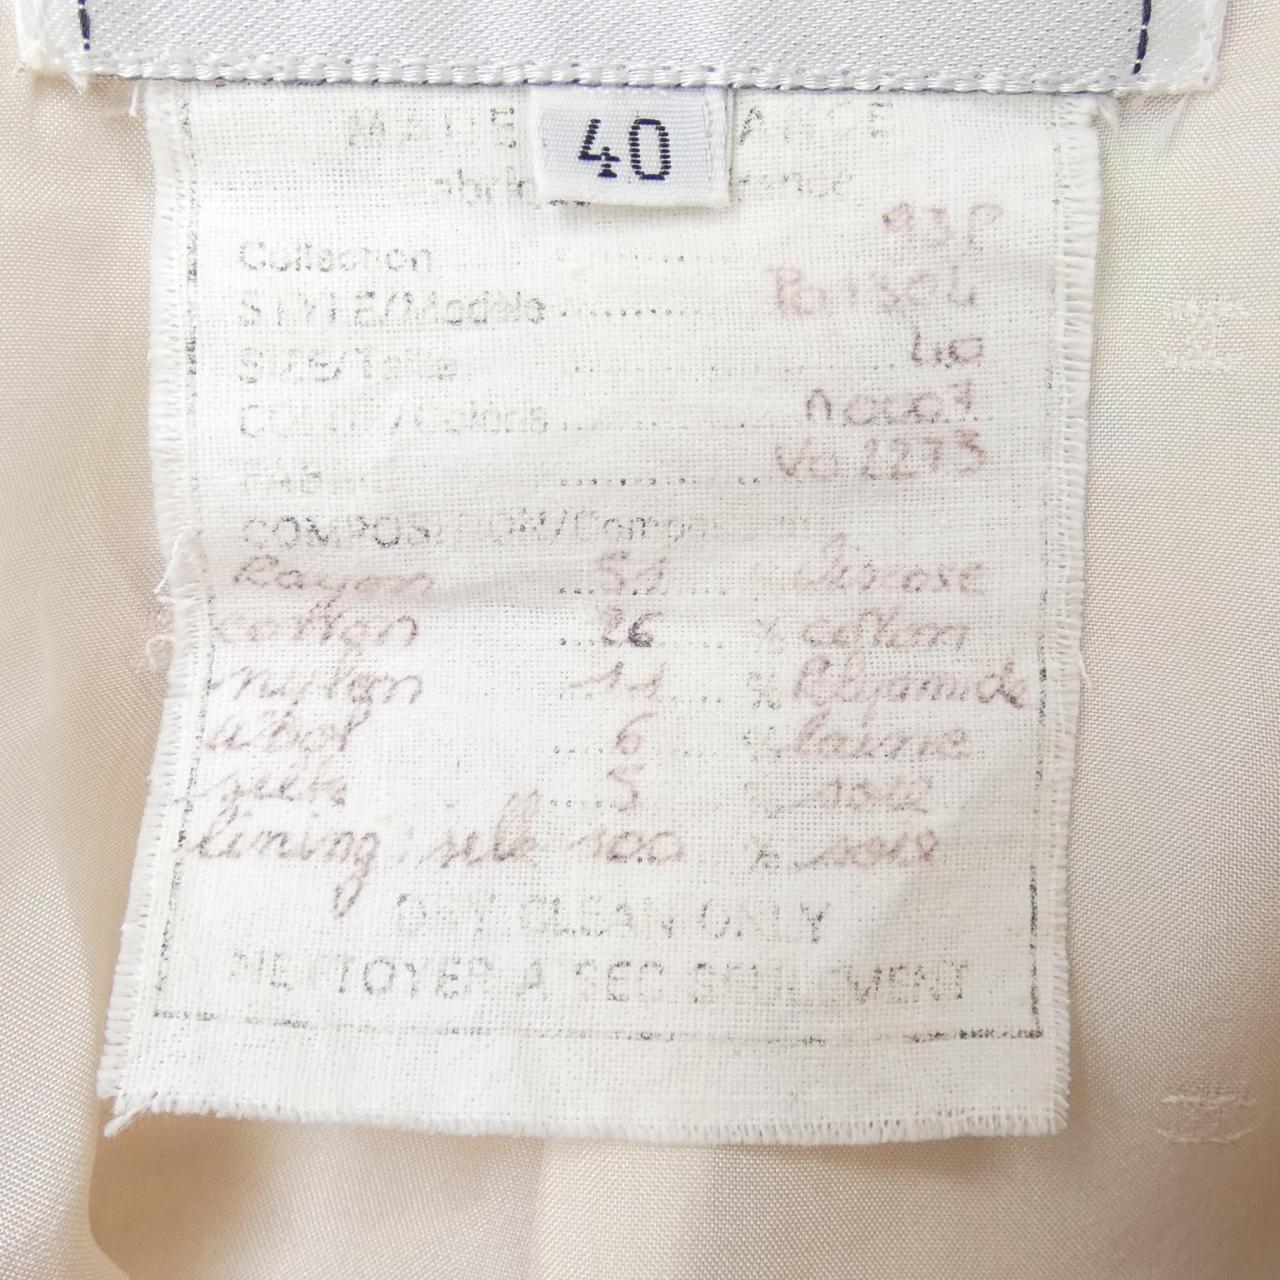 40
Collection 93P
STYLE/Modèle .......... P01304
SIZE/Taille .......... 40
COLOR/Coloris
FABRIC .......... V02273
COMPOSITION/Composition
Rayon ... 51 % Viscose
cotton ... 26 % coton
nylon ... 11 ... % Polyamide
wool ... 6 % laine
silk ... 5 % soie
lining : silk 100 % soie
DRY CLEAN ONLY
NETTOYER A SEC SEULEMENT